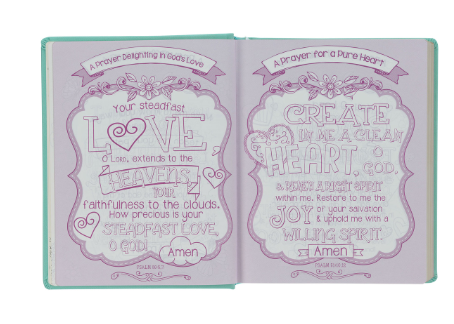 A Prayer Delighting in God's Love
Your steadfast
LOVE,
O Lord, extends to the
HEAVENS,
YOUR
faithfulness to the clouds.
How precious is your
STEADFAST LOVE,
O GOD!
Amen
A Prayer for a Pure Heart
CREATE
IN ME A CLEAN
HEART,
O GOD,
& RENEW A RIGHT SPIRIT
within me. Restore to me the
JOY of your salvation
& uphold me with a
WILLING SPIRIT.
Amen